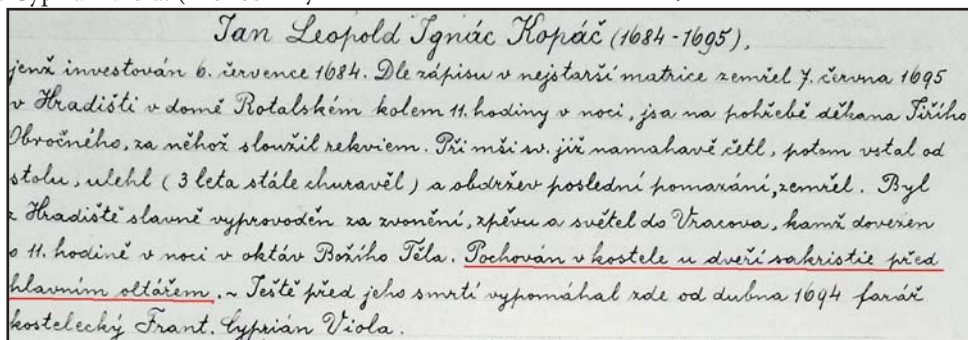 Jan Leopold Ignác Kopáč (1684-1695),
jenž investován 6. července 1684. Dle zápisu v nejstarší matrice zemřel 7. června 1695
v Hradišti v domě Rotalském kolem 11. hodiny v noci, jsa na pohřebě děkana Jiřího
Obročného, za něhož sloužil rekviem. Při mši sv. již namahavě četl, potom vstal od
stolu, ulehl (3 leta stále churavěl) a obdržev poslední pomazání, zemřel. Byl
z Hradiště slavně vyprovoděn za zvonění, zpěvu a světel do Vracova, kamž dovezen
o 11. hodině v noci v oktáv Božího Těla. Pochován v kostele u dveří sakristie před
hlavním oltářem. ~ Ještě před jeho smrtí vypomáhal zde od dubna 1694 farář
kostelecký Frant. Cyprián Viola.